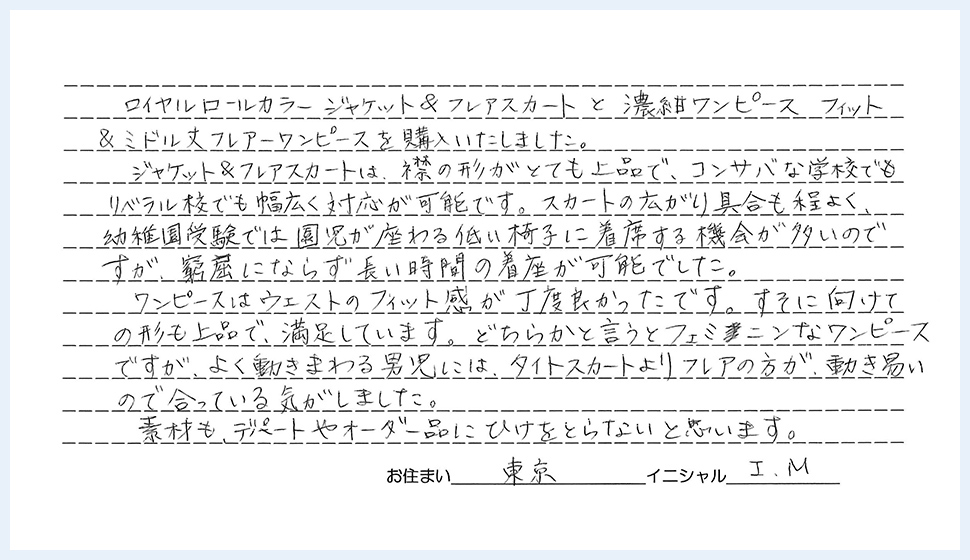 ロイヤルロールカラー ジャケット&フレアスカートと 濃紺ワンピース フィット
&ミドル丈フレアーワンピースを購入いたしました。
ジャケット&フレアスカートは、襟の形がとても上品で、コンサバな学校でも
リベラル校でも幅広く対応が可能です。スカートの広がり具合も程よく、
幼稚園受験では園児が座わる低い椅子に着席する機会が多いので
すが、窮屈にならず長い時間の着座が可能でした。
ワンピースはウェストのフィット感が丁度良かったです。すそに向けて
の形も上品で、満足しています。どちらかと言うとフェミニンなワンピース
ですが、よく動きまわる男児には、タイトスカートよりフレアの方が、動き易い
ので合っている気がしました。
素材も、デパートやオーダー品にひけをとらないと思います。
お住まい 東京 イニシャル I.M